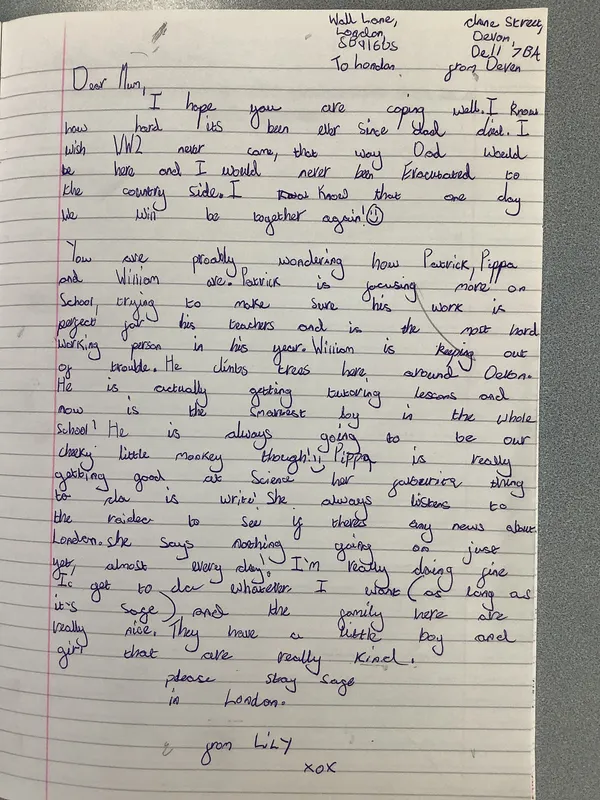 Wall Lane,
London,
SD916US
To London
Jane Street,
Devon,
Dell 7BA
from Deven
Dear Mum,
I hope you are coping well. I know
how hard its been ever since dad died. I
wish VW2 never come, that way Dad would
be here and I would never been Evacuated to
the country side. I know that one day
we will be together again!☺
You are proably wondering how Patrick, Pippa
and William are. Patrick is focusing more on
School, trying to make sure his work is
perfect for his teachers and is the most hard
working person in his year. William is keeping out
of trouble. He climbs trees here around Devon.
He is actually getting tutoring lessons and
now is the smartest boy in the whole
school! He is always going to be our
cheeky little monkey though!☺ Pippa is really
getting good at Science her thing
to do is write! She always listens to
the raideo to see if theres any news about
London. She says nothing going on just
yet, almost every day! I'm really doing fine
I get to do whatever I want (as long as
it's safe) and the family here are
really nice. They have a little boy and
girl that are really kind.
please stay safe
in London.
from LILY
xox